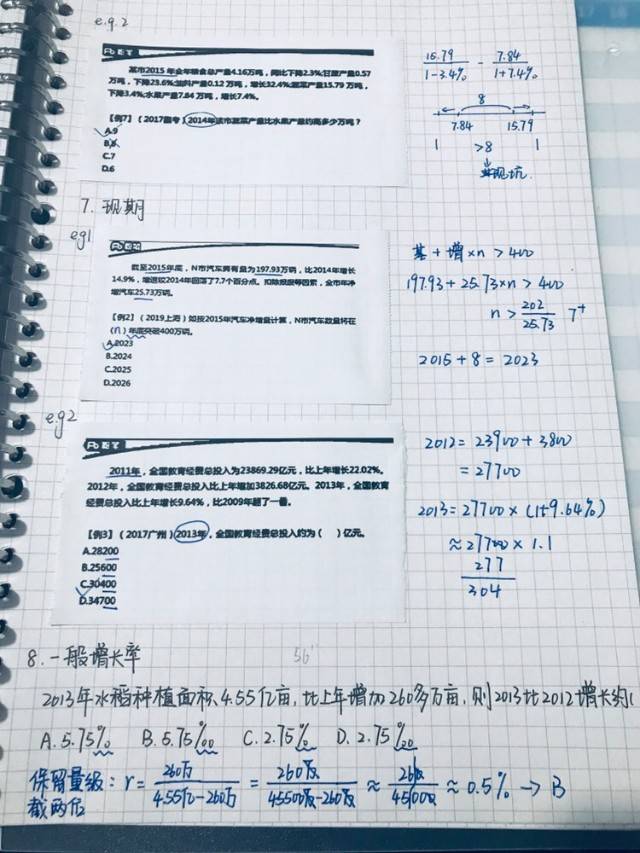 e.g.2
某市2015年全年粮食总产量4.16万吨，同比下降2.3%;甘蔗产量0.57
万吨，下降23.6%;油料产量0.12万吨，增长32.4%;蔬菜产量15.79万吨，
下降3.4%;水果产量7.84万吨，增长7.4%。
【例7】（2017国考）2014年该市蔬菜产量比水果产量约高多少万吨？
A.9
B.8
C.7
D.6
15.79/1-3.4% - 7.84/1+7.4%
8
7.84 15.79
1 >8 1
现坑
7. 现期
eg1
截至2015年底，N市汽车拥有量为197.93万辆，比2014年增长
14.9%，增速较2014年回落了7.7个百分点。扣除报废等因素，全市年净
增汽车25.73万辆。
【例2】（2019上海）如按2015年汽车净增量计算，N市汽车数量将在
(n)年度突破400万辆。
A.2023
B.2024
C.2025
D.2026
基+增×n>400
197.93+25.73×n>400
n>202/25.73 7⁺
2015+8=2023
e.g2
2011年，全国教育经费总投入为23869.29亿元，比上年增长22.02%。
2012年，全国教育经费总投入比上年增加3826.68亿元。2013年，全国教育
经费总投入比上年增长9.64%，比2009年翻了一番。
【例3】（2017广州）2013年，全国教育经费总投入约为（ ）亿元。
A.28200
B.25600
C.30400
D.34700
2012=23900+3800
=27700
2013=27700×(1+9.64%)
≈27700×1.1
277
304
8.一般增长率
56
2013年水稻种植面积4.55亿亩，比上年增加260多万亩，则2013比2012增长约(
A.5.75% B.5.75‰ C.2.75% D.2.75‰
保留量级：r=260万/4.55亿-260万=260万/45500万-260万≈26/4500≈0.5%→B
截两位